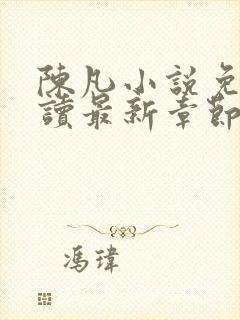 陳凡小說免
讀最新章節
馮瑋